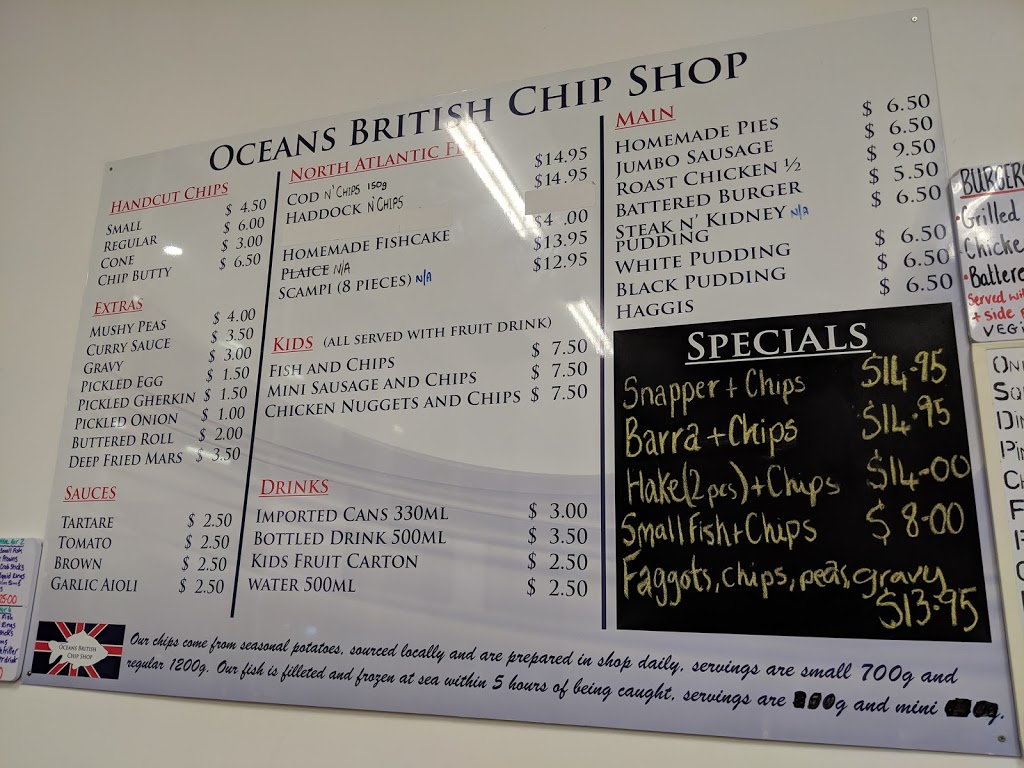 OCEANS BRITISH CHIP SHOP
HANDCUT CHIPS
SMALL $ 4.50
REGULAR $ 6.00
CONE $ 3.00
CHIP BUTTY $ 6.50
EXTRAS
MUSHY PEAS $ 4.00
CURRY SAUCE $ 3.50
GRAVY $ 3.00
PICKLED EGG $ 1.50
PICKLED GHERKIN $ 1.50
PICKLED ONION $ 1.00
BUTTERED ROLL $ 2.00
DEEP FRIED MARS $ 3.50
SAUCES
TARTARE $ 2.50
TOMATO $ 2.50
BROWN $ 2.50
GARLIC AIOLI $ 2.50
NORTH ATLANTIC
COD N' CHIPS 150g $14.95
HADDOCK N' CHIPS $14.95
HOMEMADE FISHCAKE $4 .00
PLAICE N/A $13.95
SCAMPI (8 PIECES) N/A $12.95
KIDS (ALL SERVED WITH FRUIT DRINK)
FISH AND CHIPS $ 7.50
MINI SAUSAGE AND CHIPS $ 7.50
CHICKEN NUGGETS AND CHIPS $ 7.50
DRINKS
IMPORTED CANS 330ML $ 3.00
BOTTLED DRINK 500ML $ 3.50
KIDS FRUIT CARTON $ 2.50
WATER 500ML $ 2.50
MAIN
HOMEMADE PIES $ 6.50
JUMBO SAUSAGE $ 6.50
ROAST CHICKEN ½ $ 9.50
BATTERED BURGER $ 5.50
STEAK N' KIDNEY N/A $ 6.50
PUDDING
WHITE PUDDING $ 6.50
BLACK PUDDING $ 6.50
HAGGIS $ 6.50
SPECIALS
Snapper + Chips $14.95
Barra + Chips $14.95
Hake (2 pcs) + Chips $14.00
Small Fish + Chips $ 8.00
Faggots, chips, peas, gravy
$13.95
OCEANS BRITISH
CHIP SHOP
Our chips come from seasonal potatoes, sourced locally and are prepared in shop daily, servings are small 700g and
regular 1200g. Our fish is filleted and frozen at sea within 5 hours of being caught, servings are g and mini g.
BURGERS
Grilled
Chicke
Battere
Served wit
+ side
VEGI